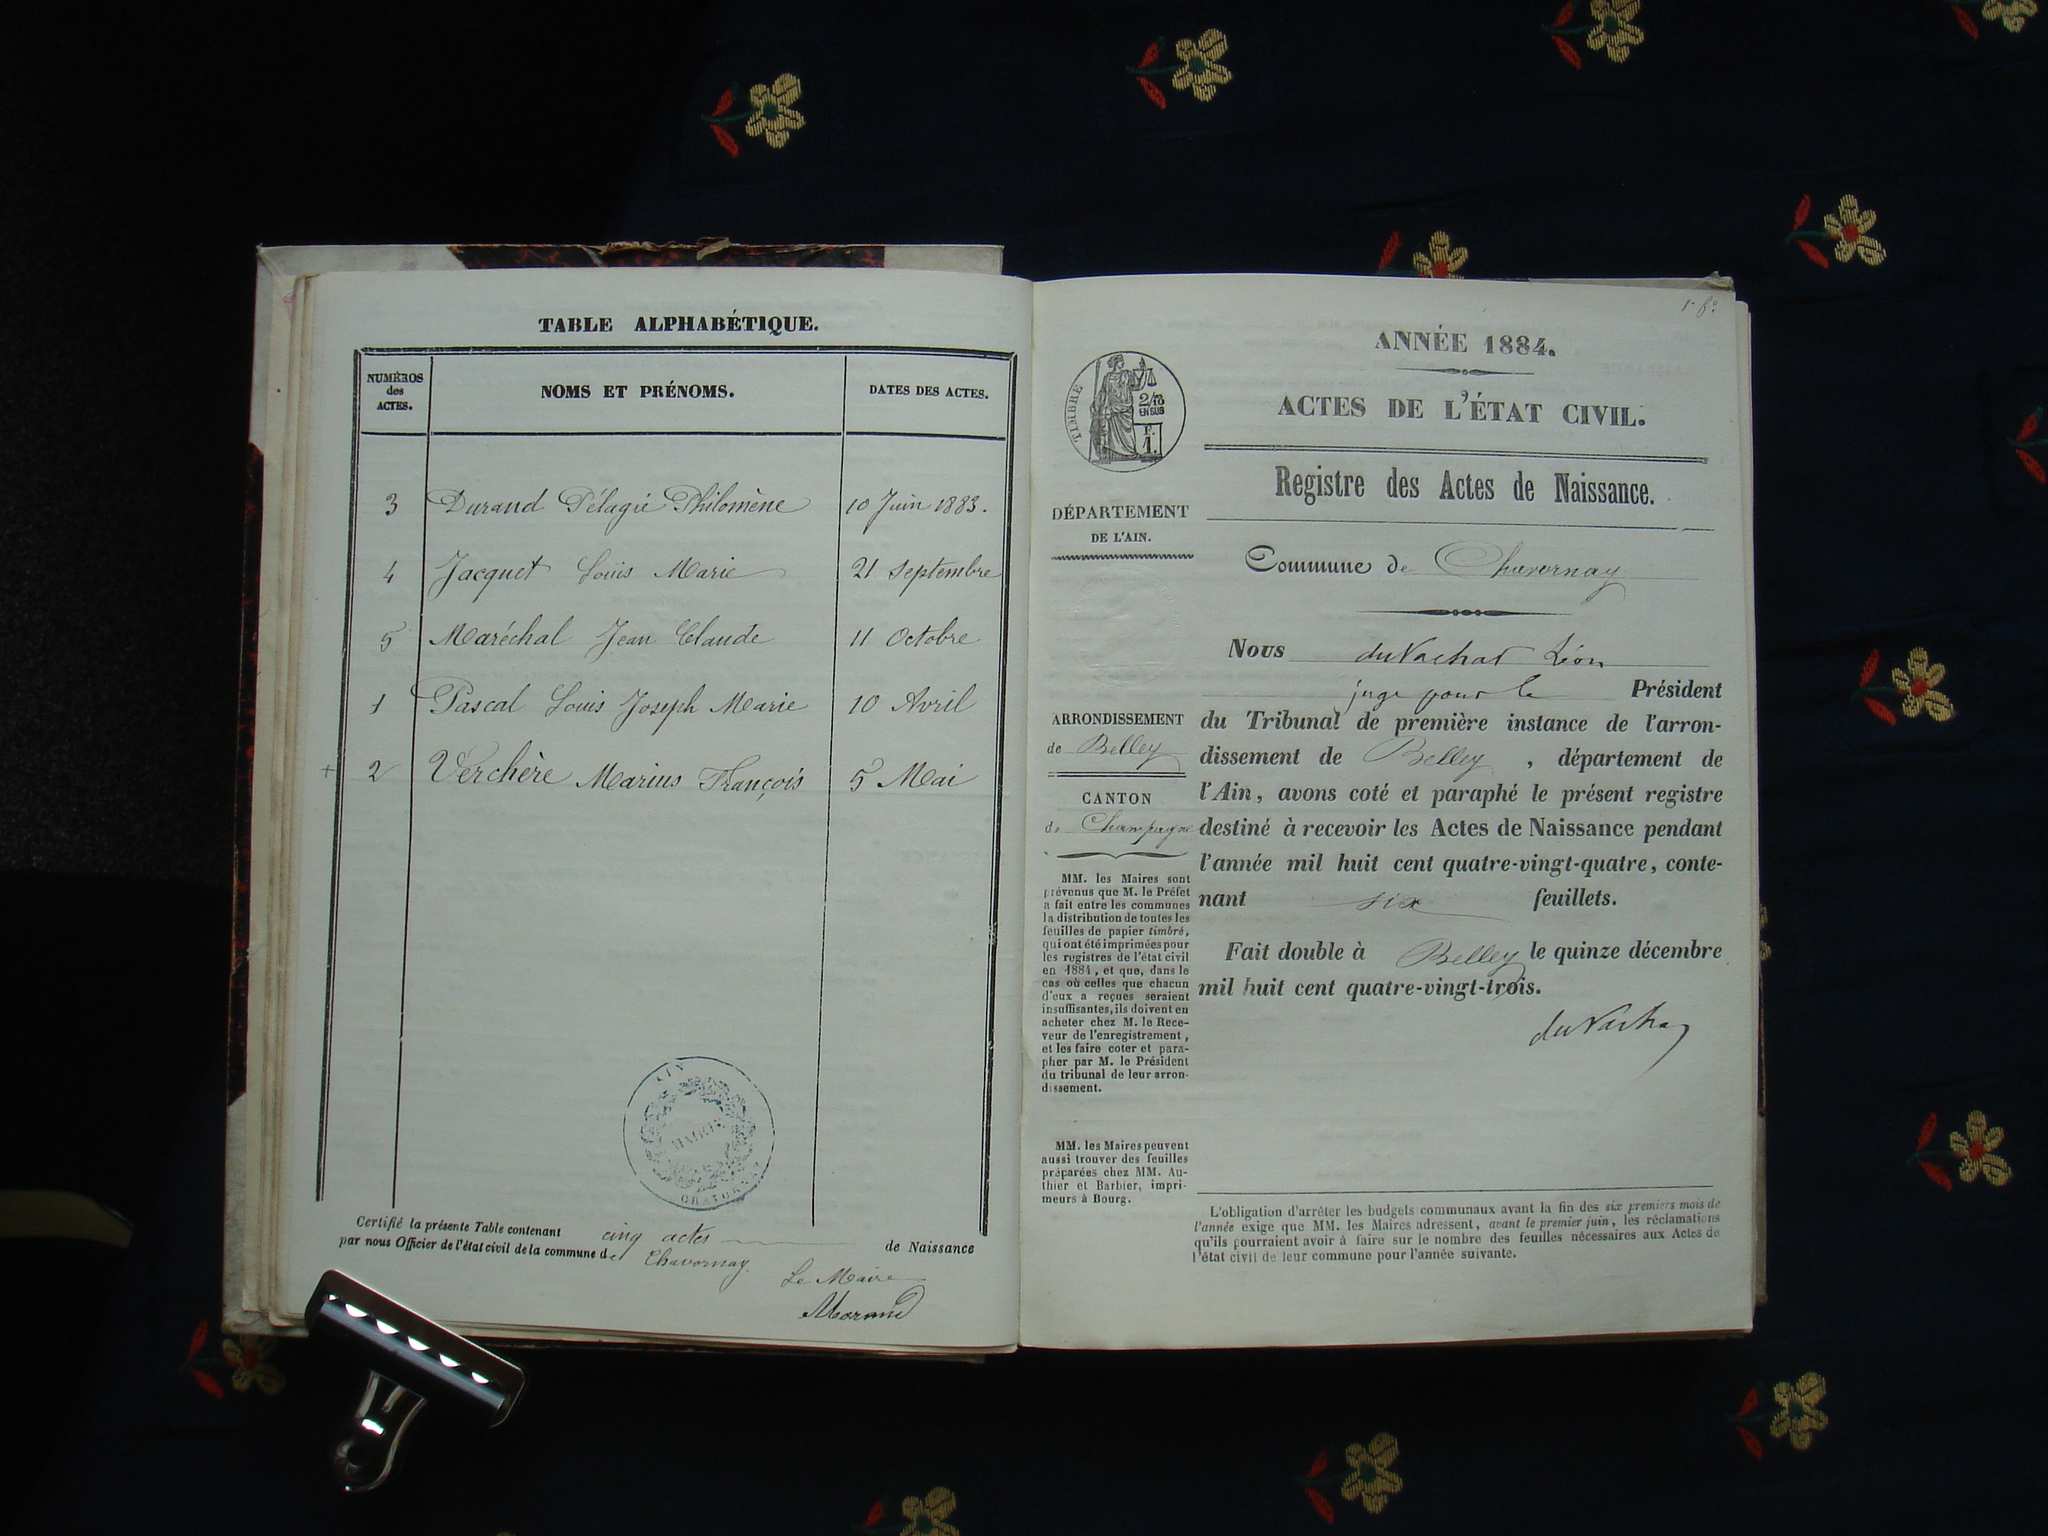 TABLE ALPHABÉTIQUE.
NUMÉROS des ACTES. NOMS ET PRÉNOMS. DATES DES ACTES.
3 Durand Pélagie Philomène 10 Juin 1883.
4 Jacquet Louis Marie 21 Septembre
5 Maréchal Jean Claude 11 Octobre
1 Pascal Louis Joseph Marie 10 Avril
+ 2 Verchère Marius François 5 Mai
AIN
MAIRIE
Certifié la présente Table contenant cinq actes de Naissance
par nous Officier de l'état civil de la commune de Chavornay.
Le Maire
Morand
1er fo
ANNÉE 1884.
ACTES DE L'ÉTAT CIVIL.
Registre des Actes de Naissance.
Commune de Chavornay
Nous du Vachat Léon
juge pour le Président
du Tribunal de première instance de l'arron-
dissement de Belley, département de
l'Ain, avons coté et paraphé le présent registre
destiné à recevoir les Actes de Naissance pendant
l'année mil huit cent quatre-vingt-quatre, conte-
nant six feuillets.
Fait double à Belley le quinze décembre
mil huit cent quatre-vingt-trois.
du Vachat
L'obligation d'arrêter les budgets communaux avant la fin des six premiers mois de
l'année exige que MM. les Maires adressent, avant le premier juin, les réclamations
qu'ils pourraient avoir à faire sur le nombre des feuilles nécessaires aux Actes de
l'état civil de leur commune pour l'année suivante.
TIMBRE
2/10
EN SUS
F.
1.
DÉPARTEMENT
DE L'AIN.
ARRONDISSEMENT
de Belley
CANTON
de Champagne
MM. les Maires sont
prévenus que M. le Préfet
a fait entre les communes
la distribution de toutes les
feuilles de papier timbré,
qui ont été imprimées pour
les registres de l'état civil
en 1884, et que, dans le
cas où celles que chacun
d'eux a reçues seraient
insuffisantes, ils doivent en
acheter chez M. le Rece-
veur de l'enregistrement,
et les faire coter et para-
pher par M. le Président
du tribunal de leur arron-
dissement.
MM. les Maires peuvent
aussi trouver des feuilles
préparées chez MM. Au-
thier et Barbier, impri-
meurs à Bourg.